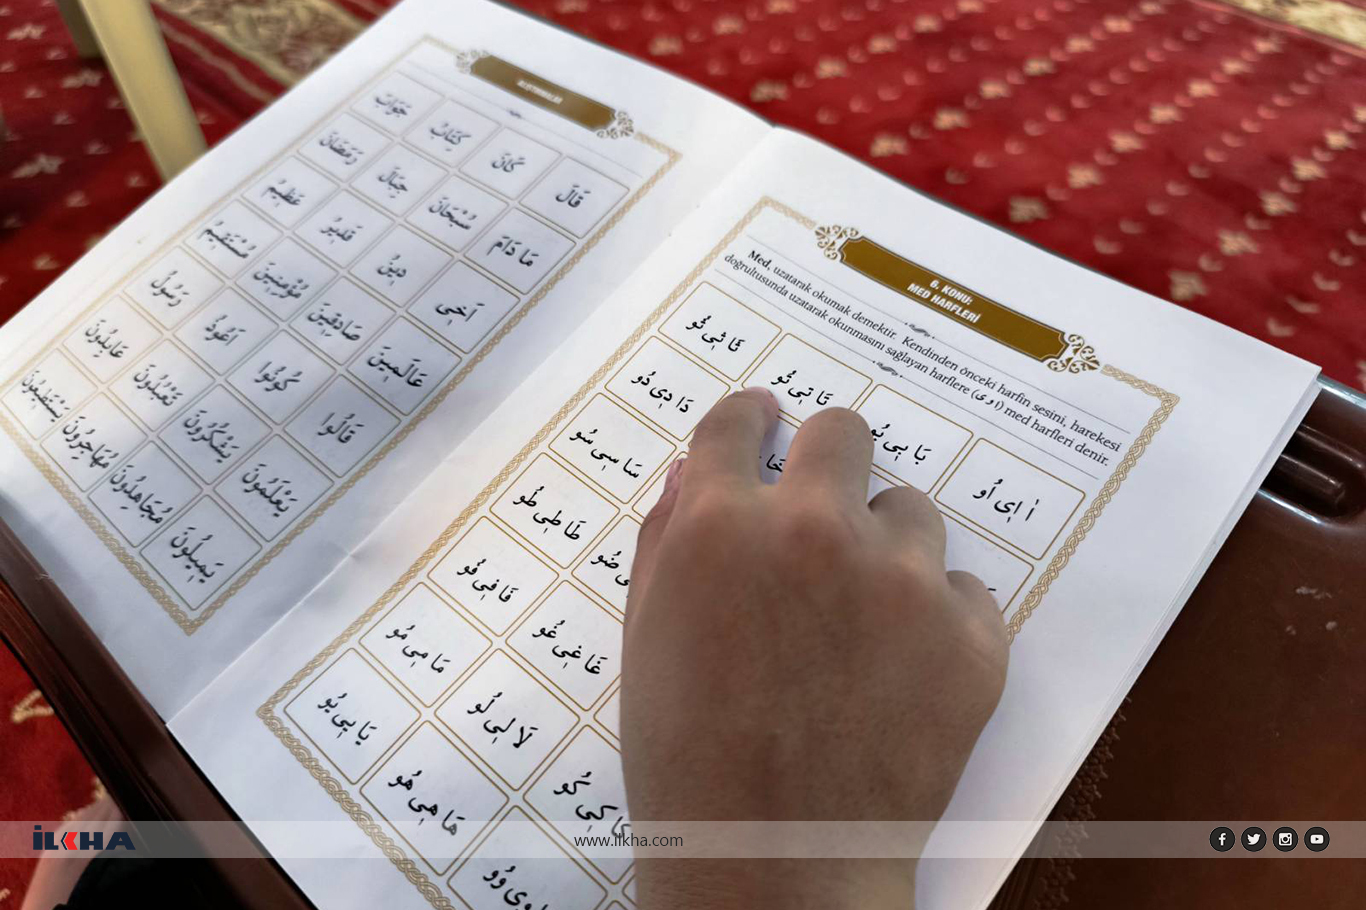 ALIŞTIRMALAR
قَالَ
كَانَ
كِتَابٌ
جَوَابٌ
مَا دَامَ
سُبْحَانَ
جِبَالٌ
رَمَضَانَ
اَخٖى
دٖينٌ
قَدٖيرٌ
عَظٖيمٌ
عَالَمٖينَ
صَادِقٖينَ
مُؤْمِنٖينَ
مُسْتَقٖيمٌ
قَالُوا
كُونُوا
اَعُوذُ
رَسُولٌ
يَعْلَمُونَ
يَشْكُرُونَ
تَعْبُدُونَ
عَابِدُونَ
يَمٖيلُونَ
مُجَاهِدُونَ
مُهَاجِرُونَ
6. KONU:
MED HARFLERİ
Med, uzatarak okumak demektir. Kendinden önceki harfin sesini, harekesi
doğrultusunda uzatarak okunmasını sağlayan harflere (ا و ى) med harfleri denir.
اٰ اٖى اُو
بَا بٖى بُو
تَا تٖى تُو
ثَا ثٖى ثُو
دَا دٖى دُو
سَا سٖى سُو
طَا طٖى طُو
غَا غٖى غُو
فَا فٖى فُو
لَا لٖى لُو
مَا مٖى مُو
هَا هٖى هُو
يَا يٖى يُو
İLKHA
www.ilkha.com